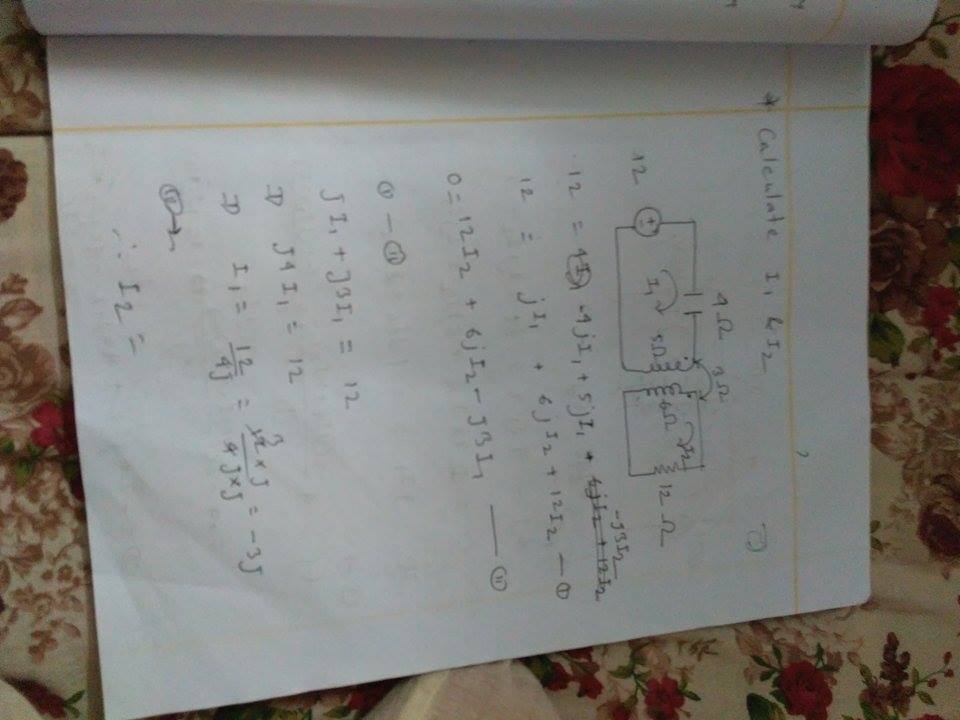 * Calculate I₁ & I₂
4Ω 3Ω
12 I₁ 5Ω 6Ω I₂ 12 Ω
-j3I₂
12 = 4I₁ -4jI₁ + 5jI₁ + 6jI₂ + 12I₂
12 = jI₁ + 6jI₂ + 12I₂ — (I)
0 = 12I₂ + 6jI₂ - j3I₁ — (II)
(I) — (II)
jI₁ + j3I₁ = 12
⇒ j4I₁ = 12
⇒ I₁ = 12/4j = 3 12×j/4j×j = -3j
(II) →
∴ I₂ =